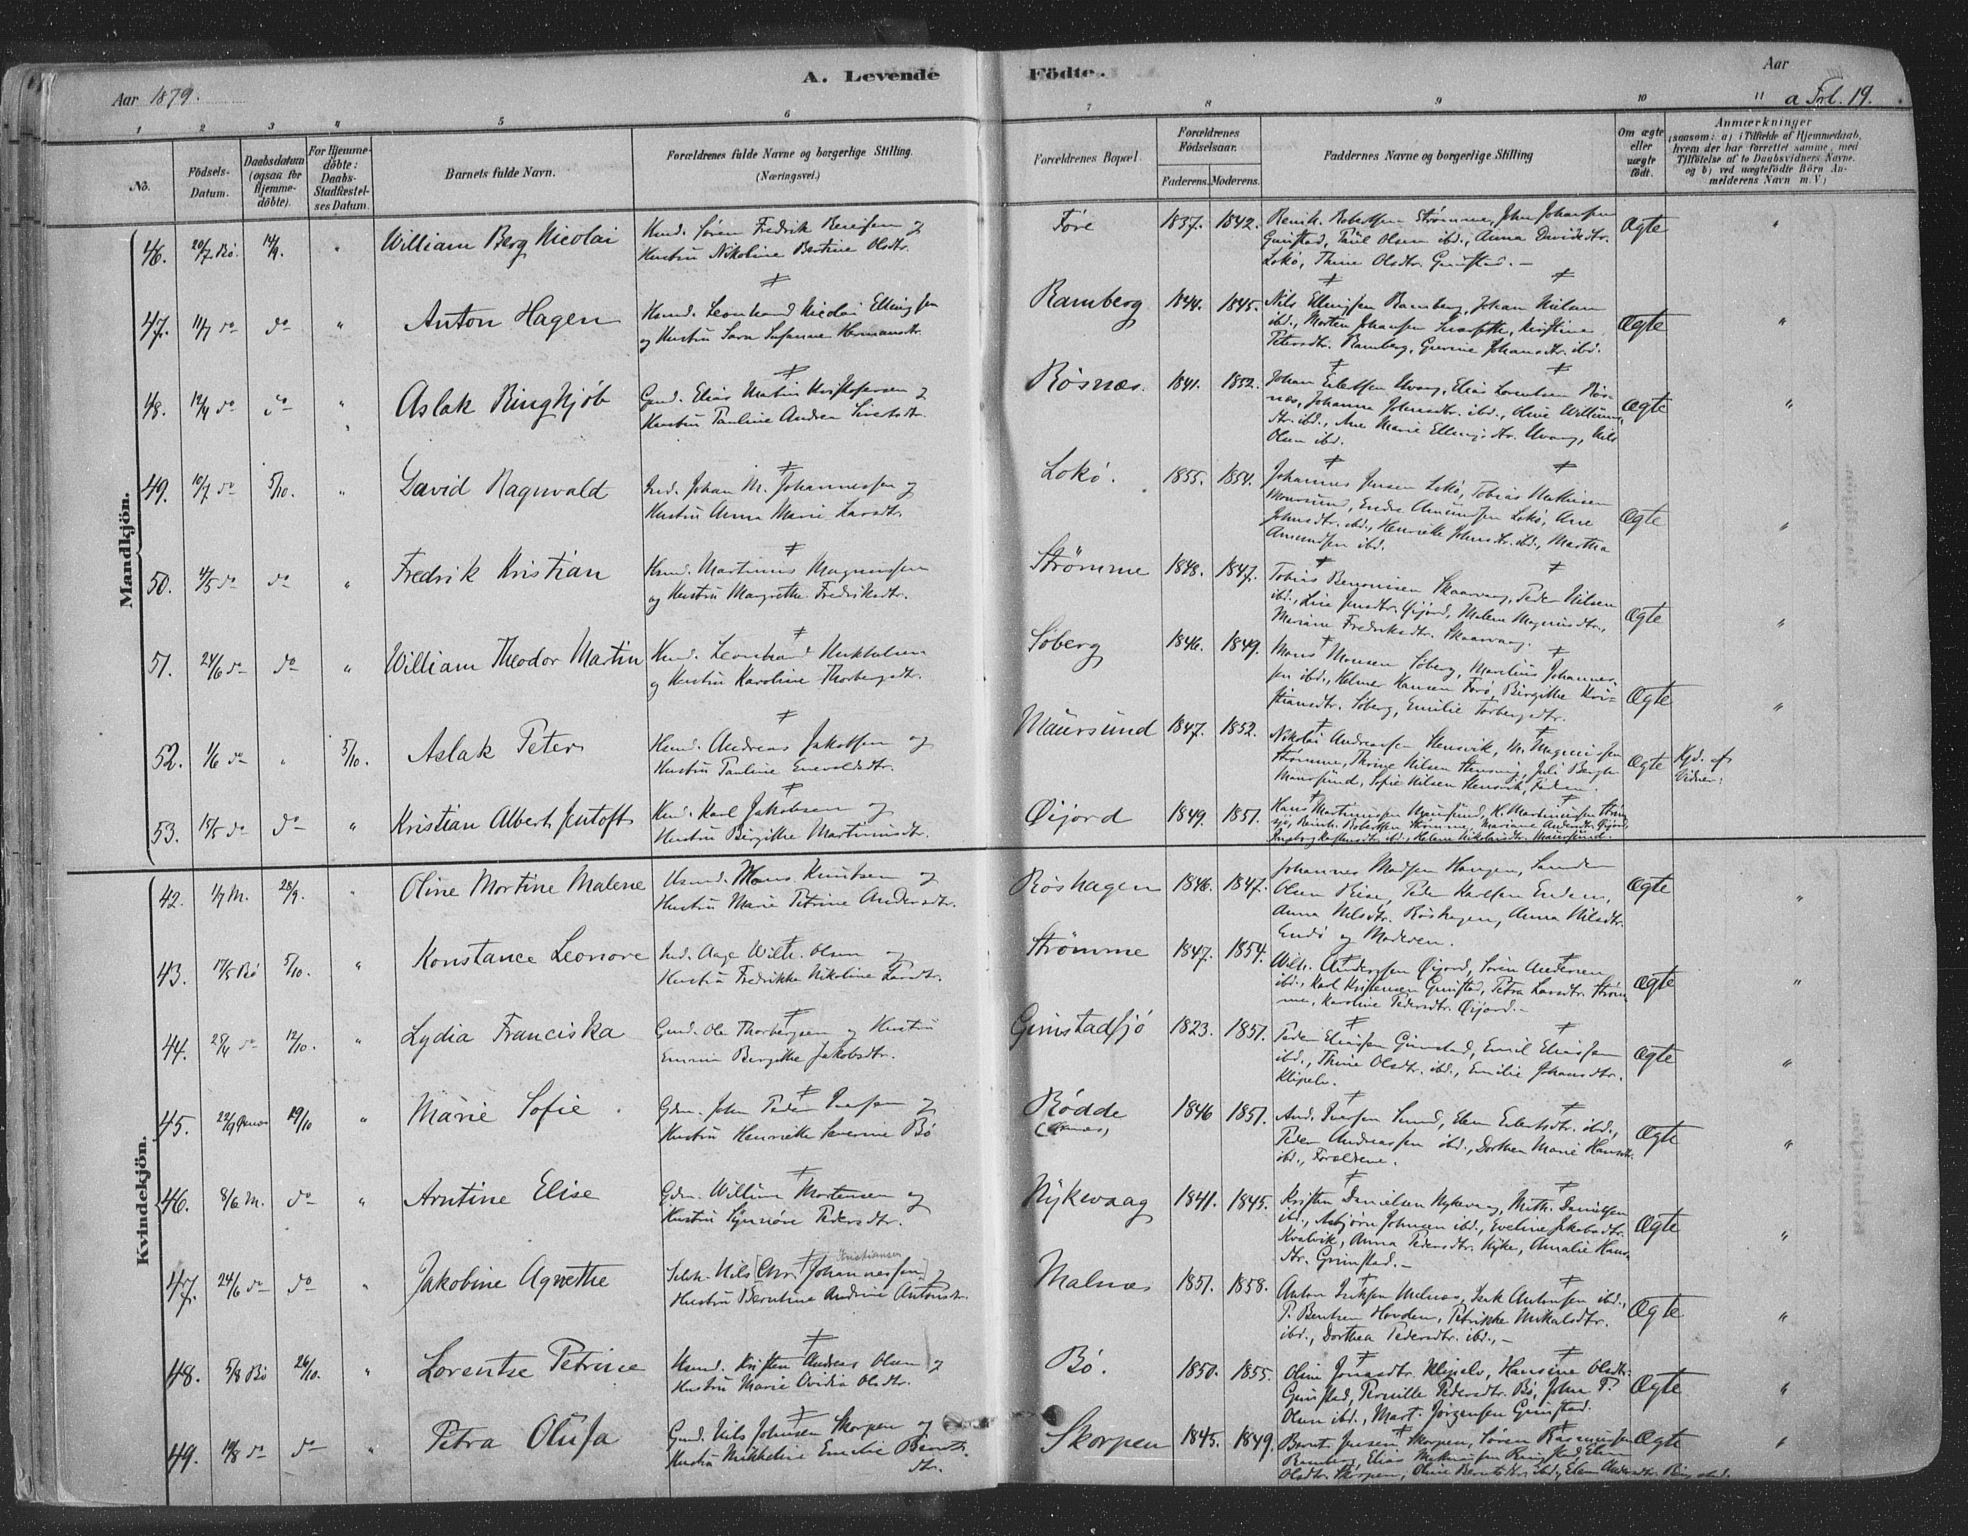 A. Levende Födte.
Aar 1879.
Aar
a Fol. 19.
1 2 3 4 5 6 7 8 9 10 11
No.
Födsels-Datum.
Daabsdatum (ogsaa for Hjemme-döbte).
For Hjemme-döbte: Daabs-Stadfæstel-ses Datum.
Barnets fulde Navn.
Forældrenes fulde Navne og borgerlige Stilling.
(Næringsvei.)
Forældrenes Bopæl.
Forældrenes Födselsaar.
Faderens. Moderens.
Faddernes Navne og borgerlige Stilling
Om ægte eller uægte födt.
Anmærkninger
(saasom: a) i Tilfælde af Hjemmedaab,
hvem der har forrettet samme, med
Tilföielse af to Daabsvidners Navne.
og b) ved uægtefödte Börn An-
melderens Navn m. V.)
Mandkjön.
46. 20/7 Bö. 14/9. " William Berg Nicolai
Hmd. Sören Fredrik Bereifsen og
Hustru Nikoline Bertine Olsdtr.
Före 1837. 1842.
Benik. Robertsen Strömme, John Johansen
Grimstad, Paul Olsen ibd., Anna Davidsdtr.
Lokö, Thine Olsdtr. Grimstad. —
Ægte "
47. 11/7 do do " Anton Hagen
Hsmd. Leonhard Nicolai Ellingsen
og Hustru Sara Susanne Hermansdtr.
Ramberg 1844. 1845.
Nils Ellingsen Ramberg, Johan Nielsen
ibd., Morten Johansen, Kristina
Petersdtr. Ramberg, Gurine Johansdtr. ibd.
Ægte "
48. 12/4 do do " Aslak Ringkjöb
Gmd. Elias Martin Kristofersen og
Hustru Pauline Andrea Sivertsdtr.
Rösnæs. 1841. 1852.
Johan Eilertsen Uvaag, Elias Lorentsen Rös-
næs, Johanna Johnsdtr. ibd., Oline Willums-
dtr. ibd., Ane Marie Ellingsdtr. Uvaag, Nils
Olsen ibd.
Ægte "
49. 10/7 do 5/10. " David Ragnvald
Ind. Johan M. Johannessen og
Hustru Anna Marie Larsdtr.
Lokö. 1855. 1854.
Johannes Jensen Lokö, Tobias Mathisen
Moursund, Endre Amundsen Lokö, Ane
Johnsdtr. ibd., Henrikke Johnsdtr. ibd., Martha
Amundsen ibd.
Ægte "
50. 4/5 do do " Fredrik Kristian
Hsmd. Martinus Magnussen
og Hustru Margrethe Fredriksdtr.
Strömme 1848. 1847.
Tobias Benonisen Skaarvaag, Peder Nilsen
ibd., Lise Jensdtr. Öijord, Malene Magnusdtr.,
Mariane Fredriksdtr. Skaarvaag.
Ægte "
51. 24/6 do do " William Theodor Martin
Hsmd. Leonhard Mikkelsen
og Hustru Karoline Thorbergsdtr.
Söberg 1846. 1849.
Mons Monsen Söberg, Marelius Johannes-
sen ibd., Helmer Hansen Forö, Birgitte Kri-
stiansdtr. Söberg, Emilie Torbergsdtr.
Ægte "
52. 1/6 do " 5/10. Aslak Peter
Hsmd. Andreas Jakobsen og
Hustru Pauline Enevoldsdtr.
Maursund 1847. 1852.
Nikolai Andreassen Hensvik, M. Magnussen
Strömme, Thrine Nilsen, Juli Bergh
Maursund, Sofie Nilsen Hensvik, Faderen.
Ægte Kjd. af
Vidner:
53. 15/5 do do " Kristian Albert Jentoft
Hsmd. Karl Jakobsen og
Hustru Birgitte Martinusdtr.
Öijord 1849. 1851.
Hans Martinussen Maursund, K. Martinussen Ström-
sjö, Benik. Robertsen Strömme, Mariane Andersdtr. Öijord,
Ingeborg ibd., Helene Nikolaisdtr. Maursund.
Kvindekjön.
42. 1/7 M. 28/9. " Oline Mortine Malene
Hsmd. Mons Knutsen og
Hustru Marie Petrine Andersdtr.
Röshagen 1846. 1847.
Johannes Madsen Haugen, Sander
Olsen Reise, Peder Karlsen Enden,
Anna Nilsdtr. Röshagen, Anna Nilsdtr.
Endö og Moderen.
Ægte "
43. 17/5 Bö 5/10. " Konstance Leonore
Ind. Aage Wilh. Olsen og
Hustru Fredrikke Nikoline Larsdtr.
Strömme 1847. 1854.
Wilh. Anderssen Öijord, Sören Andersen
ibd., Karl Kristensen Grimstad, Petra Larsdtr. Ström-
me, Karoline Pedersdtr. Öijord. —
Ægte "
44. 25/4 do 12/10. " Lydia Franciska
Gmd. Ole Thorbergsen og Hustru
Emmie Bergitte Jakobsdtr.
Grimstadsjö 1823. 1851.
Peder Eliassen Grimstad, Emil Eliassen
ibd., Thine Olsdtr. ibd., Emilie Johansdtr.
Klipelv.
Ægte "
45. 22/9 Öxnæs 19/10 " Marie Sofie
Gdm. John Peder Iversen og
Hustru Henrikke Severine Bö
Rödde
(Öxnæs) 1846 1851.
And. Iversen Smines, Elen Eilertsdtr. ibd.,
Peder Andreassen ibd., Dorthea Marie Hansdtr.
ibd., Forældrene.
Ægte "
46. 8/6 M. do " Arntine Elise
Gdm. Willum Mortensen og
Hustru Synnöve Pedersdtr.
Nykvaag 1841. 1845.
Kristen Danielsen Nykvaag, Mith. Danielsen
ibd., Asbjörn Johnsen ibd., Eveline Jakobsdtr.
Kvalvik, Anna Pedersdtr. Nyke, Amalie Hans-
dtr. Grimstad. —
Ægte "
47. 24/6 do do " Jakobine Agnethe
Kristiansen
Selvh. Nils [Chr. Johannessen] og
Hustru Berntine Andrine Antonsdtr.
Malnæs 1851. 1858.
Anton Isaksen Malnæs, Isak Antonsen ibd.,
P. Bentsen Hovden, Petrikke Mikalsdtr.
ibd., Dorthea Pedersdtr. ibd., —
Ægte "
48. 5/8 Bö 26/10. " Lorentse Petrine
Hsmd. Kristen Andreas Olsen og
Hustru Marie Ovidia Olsdtr.
Bö. 1850. 1855.
Oline Jonasdtr. Klipelv, Hansine Olsdtr.
Grimstad, Pernille Pedersdtr. Bö, John P.
Olsen ibd., Mart. Jörgensen Grimstad.
Ægte "
49. 19/8 do do " Petra Olufa
Gmd. Nils Johnsen Skorpen og
Hustru Mikkeline Emelie Bernts-
dtr.
Skorpen 1845. 1849.
Bernt Jensen Skorpen, Sören Rasmussen
Ramberg, Elias Mekinissen Ringstad, Elen
Olsdtr. Skorpen, Oline Berntsdtr. ibd., Elen Andersdtr. Ringstad.
Ægte "